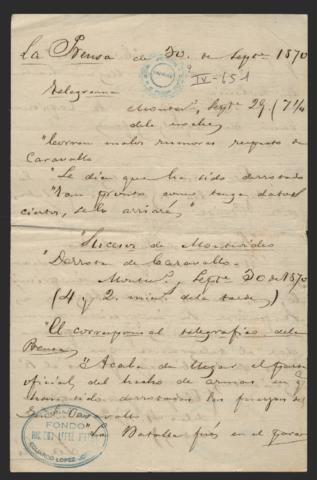 La Prensa de 30. de Septre 1870
IV-651
Telegrama
Montevo, Septe 29 (7 1/4
dela noche)
"Corren malos rumores respecto de
Caravallo
"Se dice que ha sido derrotado
"Tan pronto como tenga datos
ciertos, se lo
"Sucesos de Montevideo
"Derrota de Caravallo.
Montevo, Septe 30 de 1870
(4 y 2. mints dela tarde)
"El corresponsal telegrafico dela
Prensa,
"Acaba de llegar el parte
oficial, del hecho de armas, en q
han sido derrotadas las fuerzas del
Caravallo
"La Batalla fué en el
FONDO
EDUARDO LOPEZ